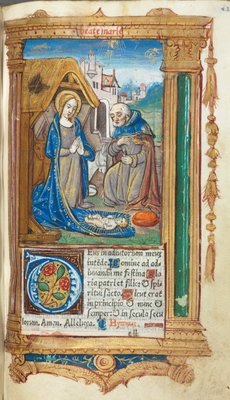 beate marie
Deus in adiutorium meum
intēde. Domine ad ad
iuuandū me festina Glo
ria patri et filio & spi
ritui sācto. Sicut erat
in principio & nunc &
semper: & in secula secu
lorum. Amen. Alleluya. Hymnus.